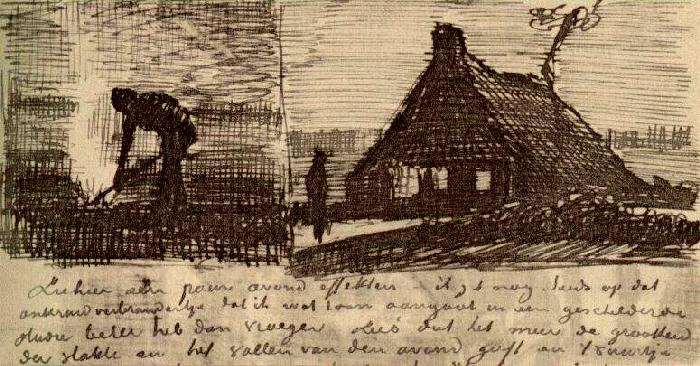 Ziehier een paar avond effekten – ik zit nog steeds op dat
onkruidverbrandertje dat ik wat toon aangaat in een geschilderde
studie beter heb dan vroeger zoo's dat het meer de grootheid
der vlakte en het vallen van den avond geeft en 't vuurtje